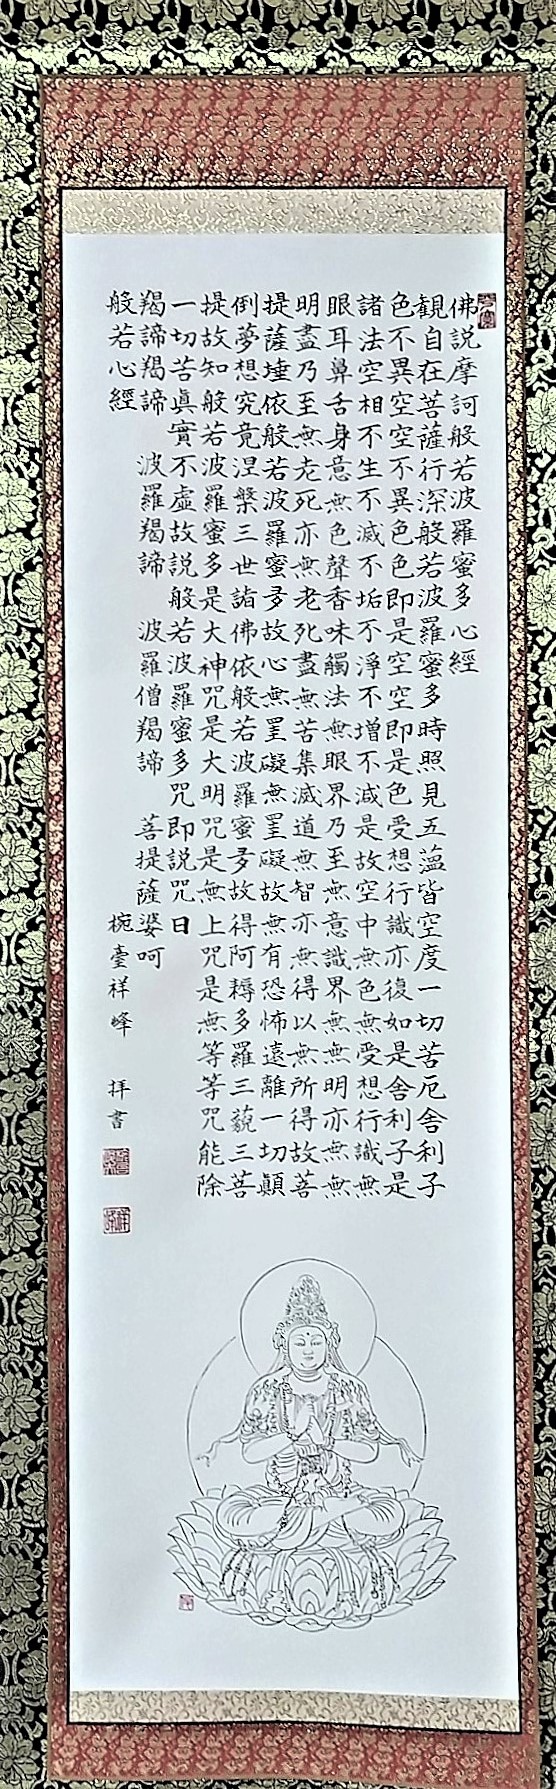 佛説摩訶般若波羅蜜多心經
観自在菩薩行深般若波羅蜜多時照見五蘊皆空度一切苦厄舎利子
色不異空空不異色色即是空空即是色受想行識亦復如是舎利子是
諸法空相不生不滅不垢不淨不増不減是故空中無色無受想行識無
眼耳鼻舌身意無色聲香味觸法無眼界乃至無意識界無無明亦無無
明盡乃至無老死亦無老死盡無苦集滅道無智亦無得以無所得故菩
提薩埵依般若波羅蜜多故心無罣礙無罣礙故無有恐怖遠離一切顛
倒夢想究竟涅槃三世諸佛依般若波羅蜜多故得阿耨多羅三藐三菩
提故知般若波羅蜜多是大神咒是大明咒是無上咒是無等等咒能除
一切苦眞實不虚故説般若波羅蜜多咒即説咒曰
羯諦羯諦 波羅羯諦 波羅僧羯諦 菩提薩婆呵
般若心經
椀臺祥峰 拝書